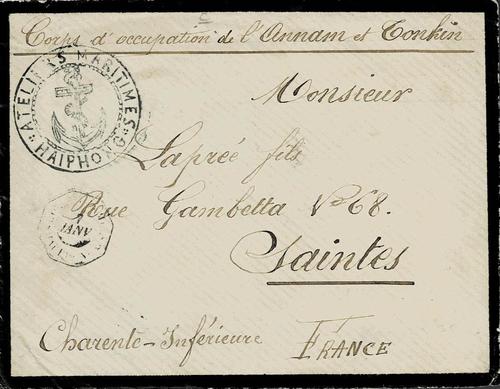 Corps d'occupation de l'Annam et Tonkin
ATELIERS MARITIMES
HAIPHONG
Monsieur
Lapreé fils
Rue Gambetta Nº 68.
Saintes
Charente-Inférieure FRANCE